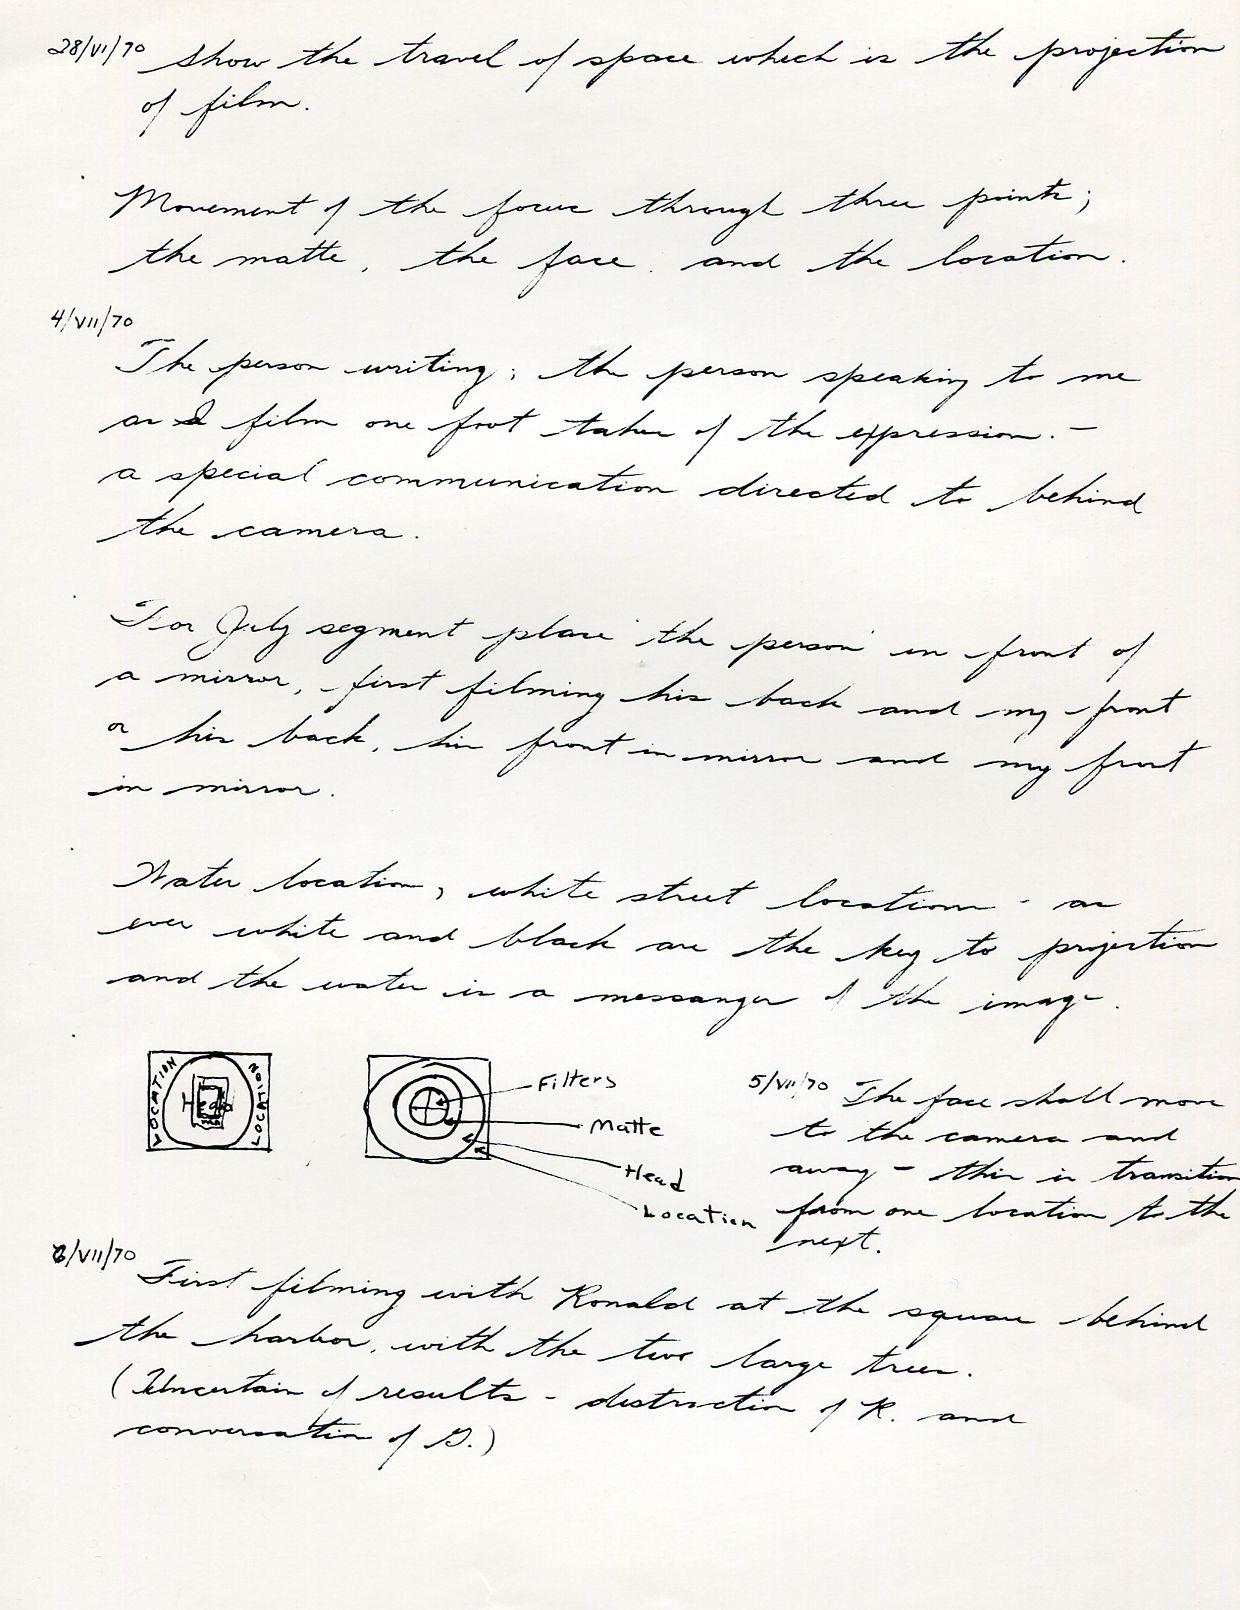 28/VI/70 Show the travel of space which is the projection
of film.
Movement of the focus through three points;
the matte, the face, and the location.
4/VII/70
The person writing; the person speaking to me
as I film one foot takes of the expression. –
a special communication directed to behind
the camera.
For July segment place the person in front of
a mirror, first filming his back and my front
or his back, his front in mirror and my front
in mirror.
Water location, white street location - as
ever white and black are the key to projection
and the water is a messanger of the image.
LOCATION
LOCATION
Head
Filters
Matte
Head
Location
5/VII/70 The face shall move
to the camera and
away – this is transition
from one location to the
next.
6/VII/70 First filming with Ronald at the square behind
the harbor, with the two large trees.
(Uncertain of results - distraction of R. and
conversation of G.)